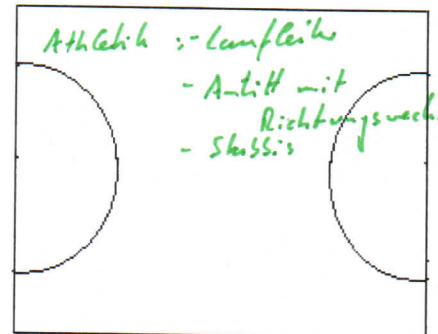 Athletik :- Laufleiter
- Antritt mit
Richtungswech
- Stabis